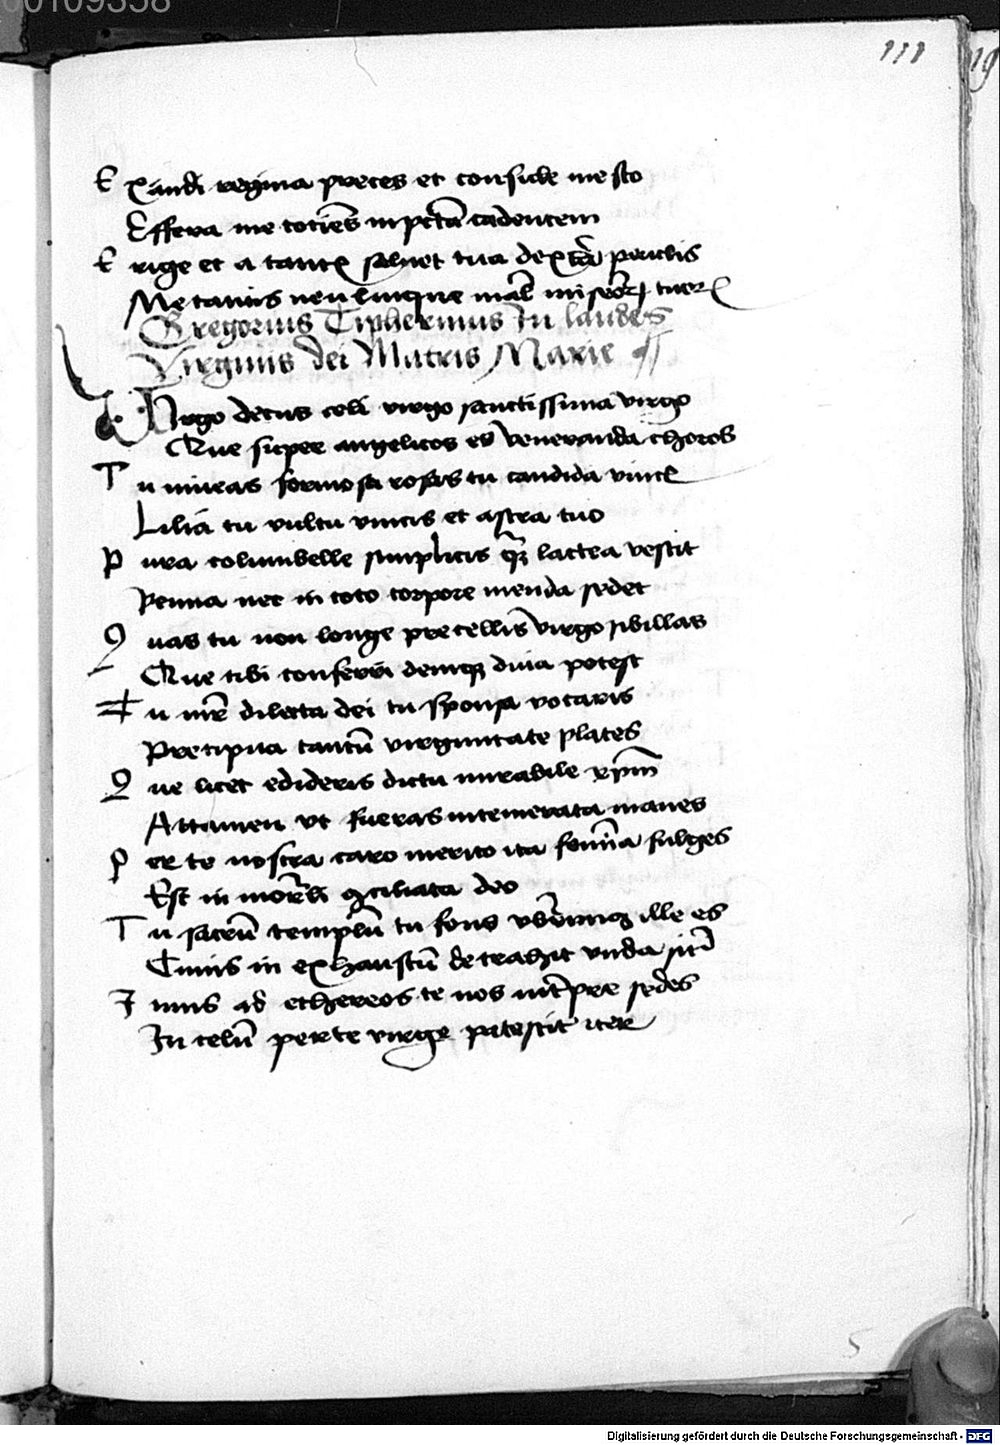 00109358
111
19
Exaudi regina preces et conside mesto
Effera me totiẽs in pctã cadentem
Erige et a tantꝭ saluet tua dextera periclis
Me tantis neu linque mal miseror tuer
Gregorius Tiphernius In laudes
Virginis dei Matris Marie
Virgo decus celi virgo sanctissima virgo
Que super angelicos es veneranda choros
Tu niueas formosa rosas tu candida vincꝭ
Lilia tu vultu vincis et astra tuo
Pura columbelle simplicis qꝫ lactea vestit
Penna nec in toto corpore menda sedet
Quas tu non longe precellis virgo sibillas
Que tibi conferri deniqꝫ diua potest
Tu mr̃e dilecta dei tu sponsa vocaris
Precipua tantũ virginitate places
Que licet edideris dictu mirabile xp̃m
Attamen vt fueras intemerata manes
Per te nostra caro merito ita femĩa fulges
Est in mortali ꝯciliata deo
Tu sacrũ templũ tu fons vberrimꝫ ille es
Cuius in exhaustũ detrahit vnda sitĩ
Imus ad ethereos te nos int̃pre sedes
In celũ per te virgo patescit iter
5
Digitalisierung gefördert durch die Deutsche Forschungsgemeinschaft - DFG